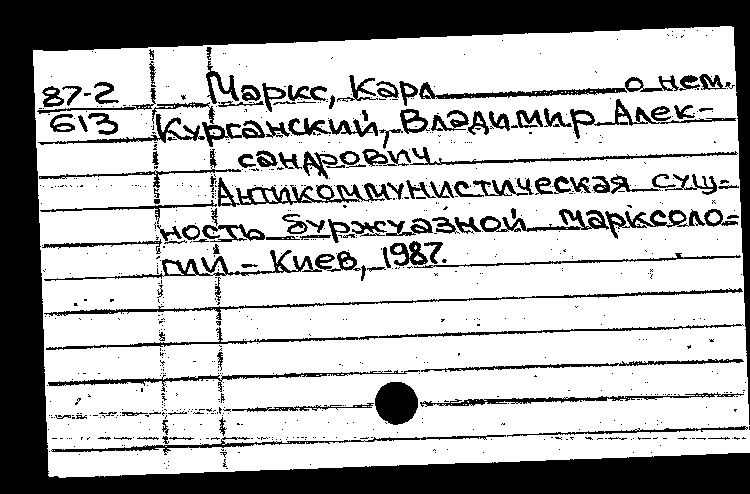 87-2 Маркс, Карл о нем.
613 Курганский, Владимир Алек-
сандрович.
Антикоммунистическая сущ-
ность буржуазной марксоло-
гии - Киев, 1987.